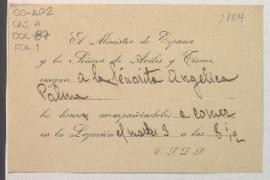 CO-AP2
CAJ 4
DOC 87
FOL. 1
1804
El Ministro de España
y la Señora de Aviles y Tiscar
ruegan a la Señorita Angelica
Palma
les honren acompañándoles a comer
en la Legación el martes 3 a las 8 1/2